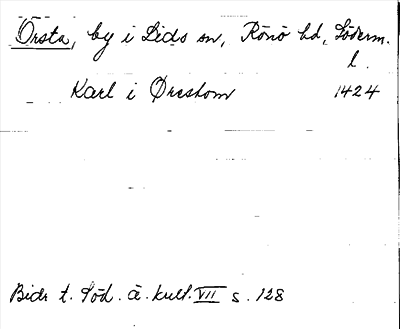 Örsta, by i Lids sn, Rönö hd, Söderm.
l.
Karl i Ørestom 1424
Bidr t. Söd. ä. kult. VII s. 128